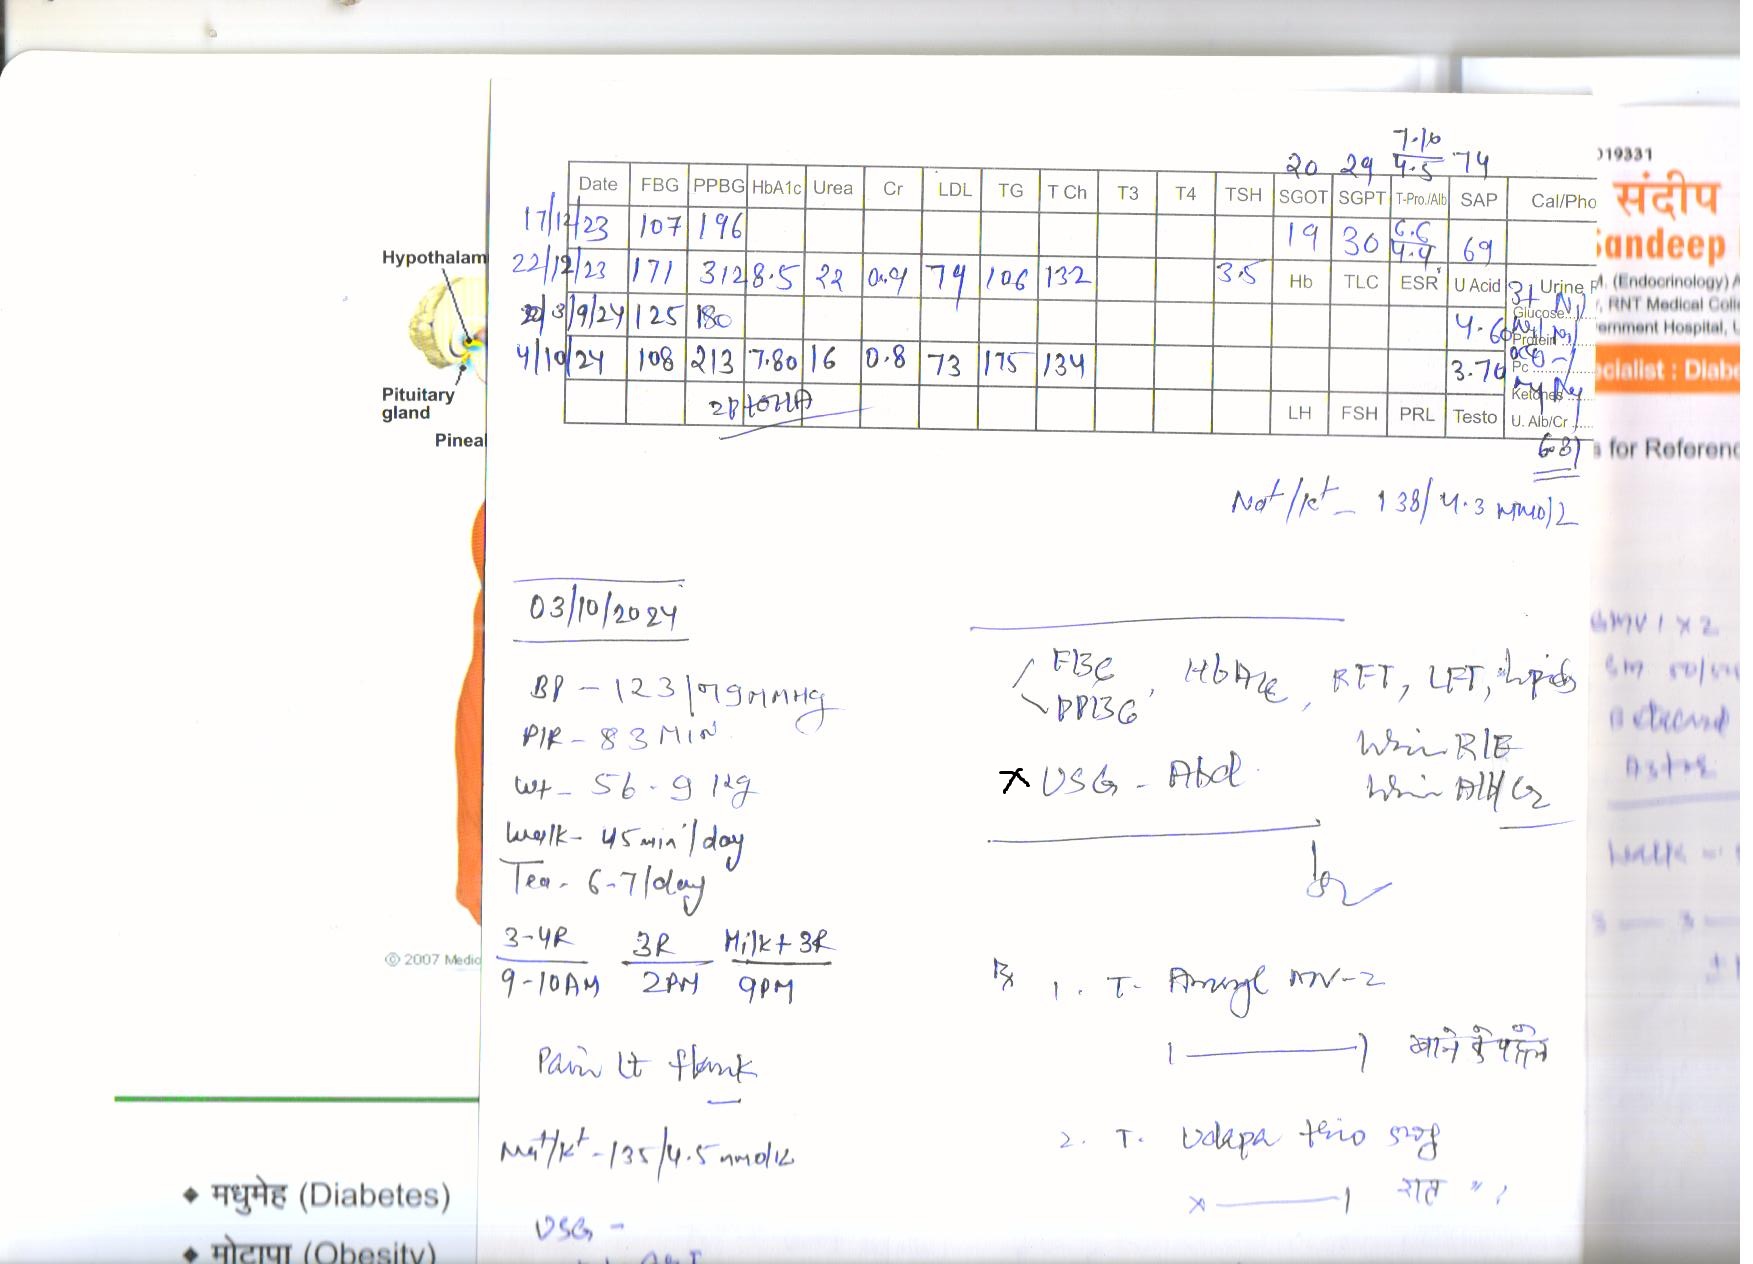 7.16
20 29 4.5 74
Date FBG PPBG HbA1c Urea Cr LDL TG T Ch T3 T4 TSH SGOT SGPT T-Pro./Alb SAP Cal/Pho
17/12/23 107 196 19 30 6.6/4.4 69
22/12/23 171 312 8.5 22 0.9 74 106 132 3.5 Hb TLC ESR U Acid Urine
3/9/24 125 180 4.60 Glucose
Protein
4/10/24 108 213 7.80 16 0.8 73 175 134 3.70 Pc
Ketones
LH FSH PRL Testo U. Alb/Cr
Na+/K+ - 138/4.3 mmol/L
03/10/2024
BP - 123/79 mmHg
P/R - 83 MIN
Wt - 56.9 kg
Walk - 45 min/day
Tea - 6-7/day
3-4R 3R Milk + 3R
9-10AM 2PM 9PM
Pain Lt flank
Na+/K+ - 135/4.5 mmol/L
USG -
FBG
PPBG, HbA1c, RFT, LFT, Lipids
Urine R/E
X USG - Abd Urine Alb/Cr
Rx 1. T. Amaryl MV-2
1 —— 1 खाने से पहले
2. T. Udapa trio
x —— 1
Hypothalam
Pituitary
gland
Pineal
© 2007 Medic
◆ मधुमेह (Diabetes)
◆ मोटापा (Obesity)
019331
संदीप
Sandeep
M. (Endocrinology) A
RNT Medical Coll
ernment Hospital, U
ecialist : Diabe
s for Referenc